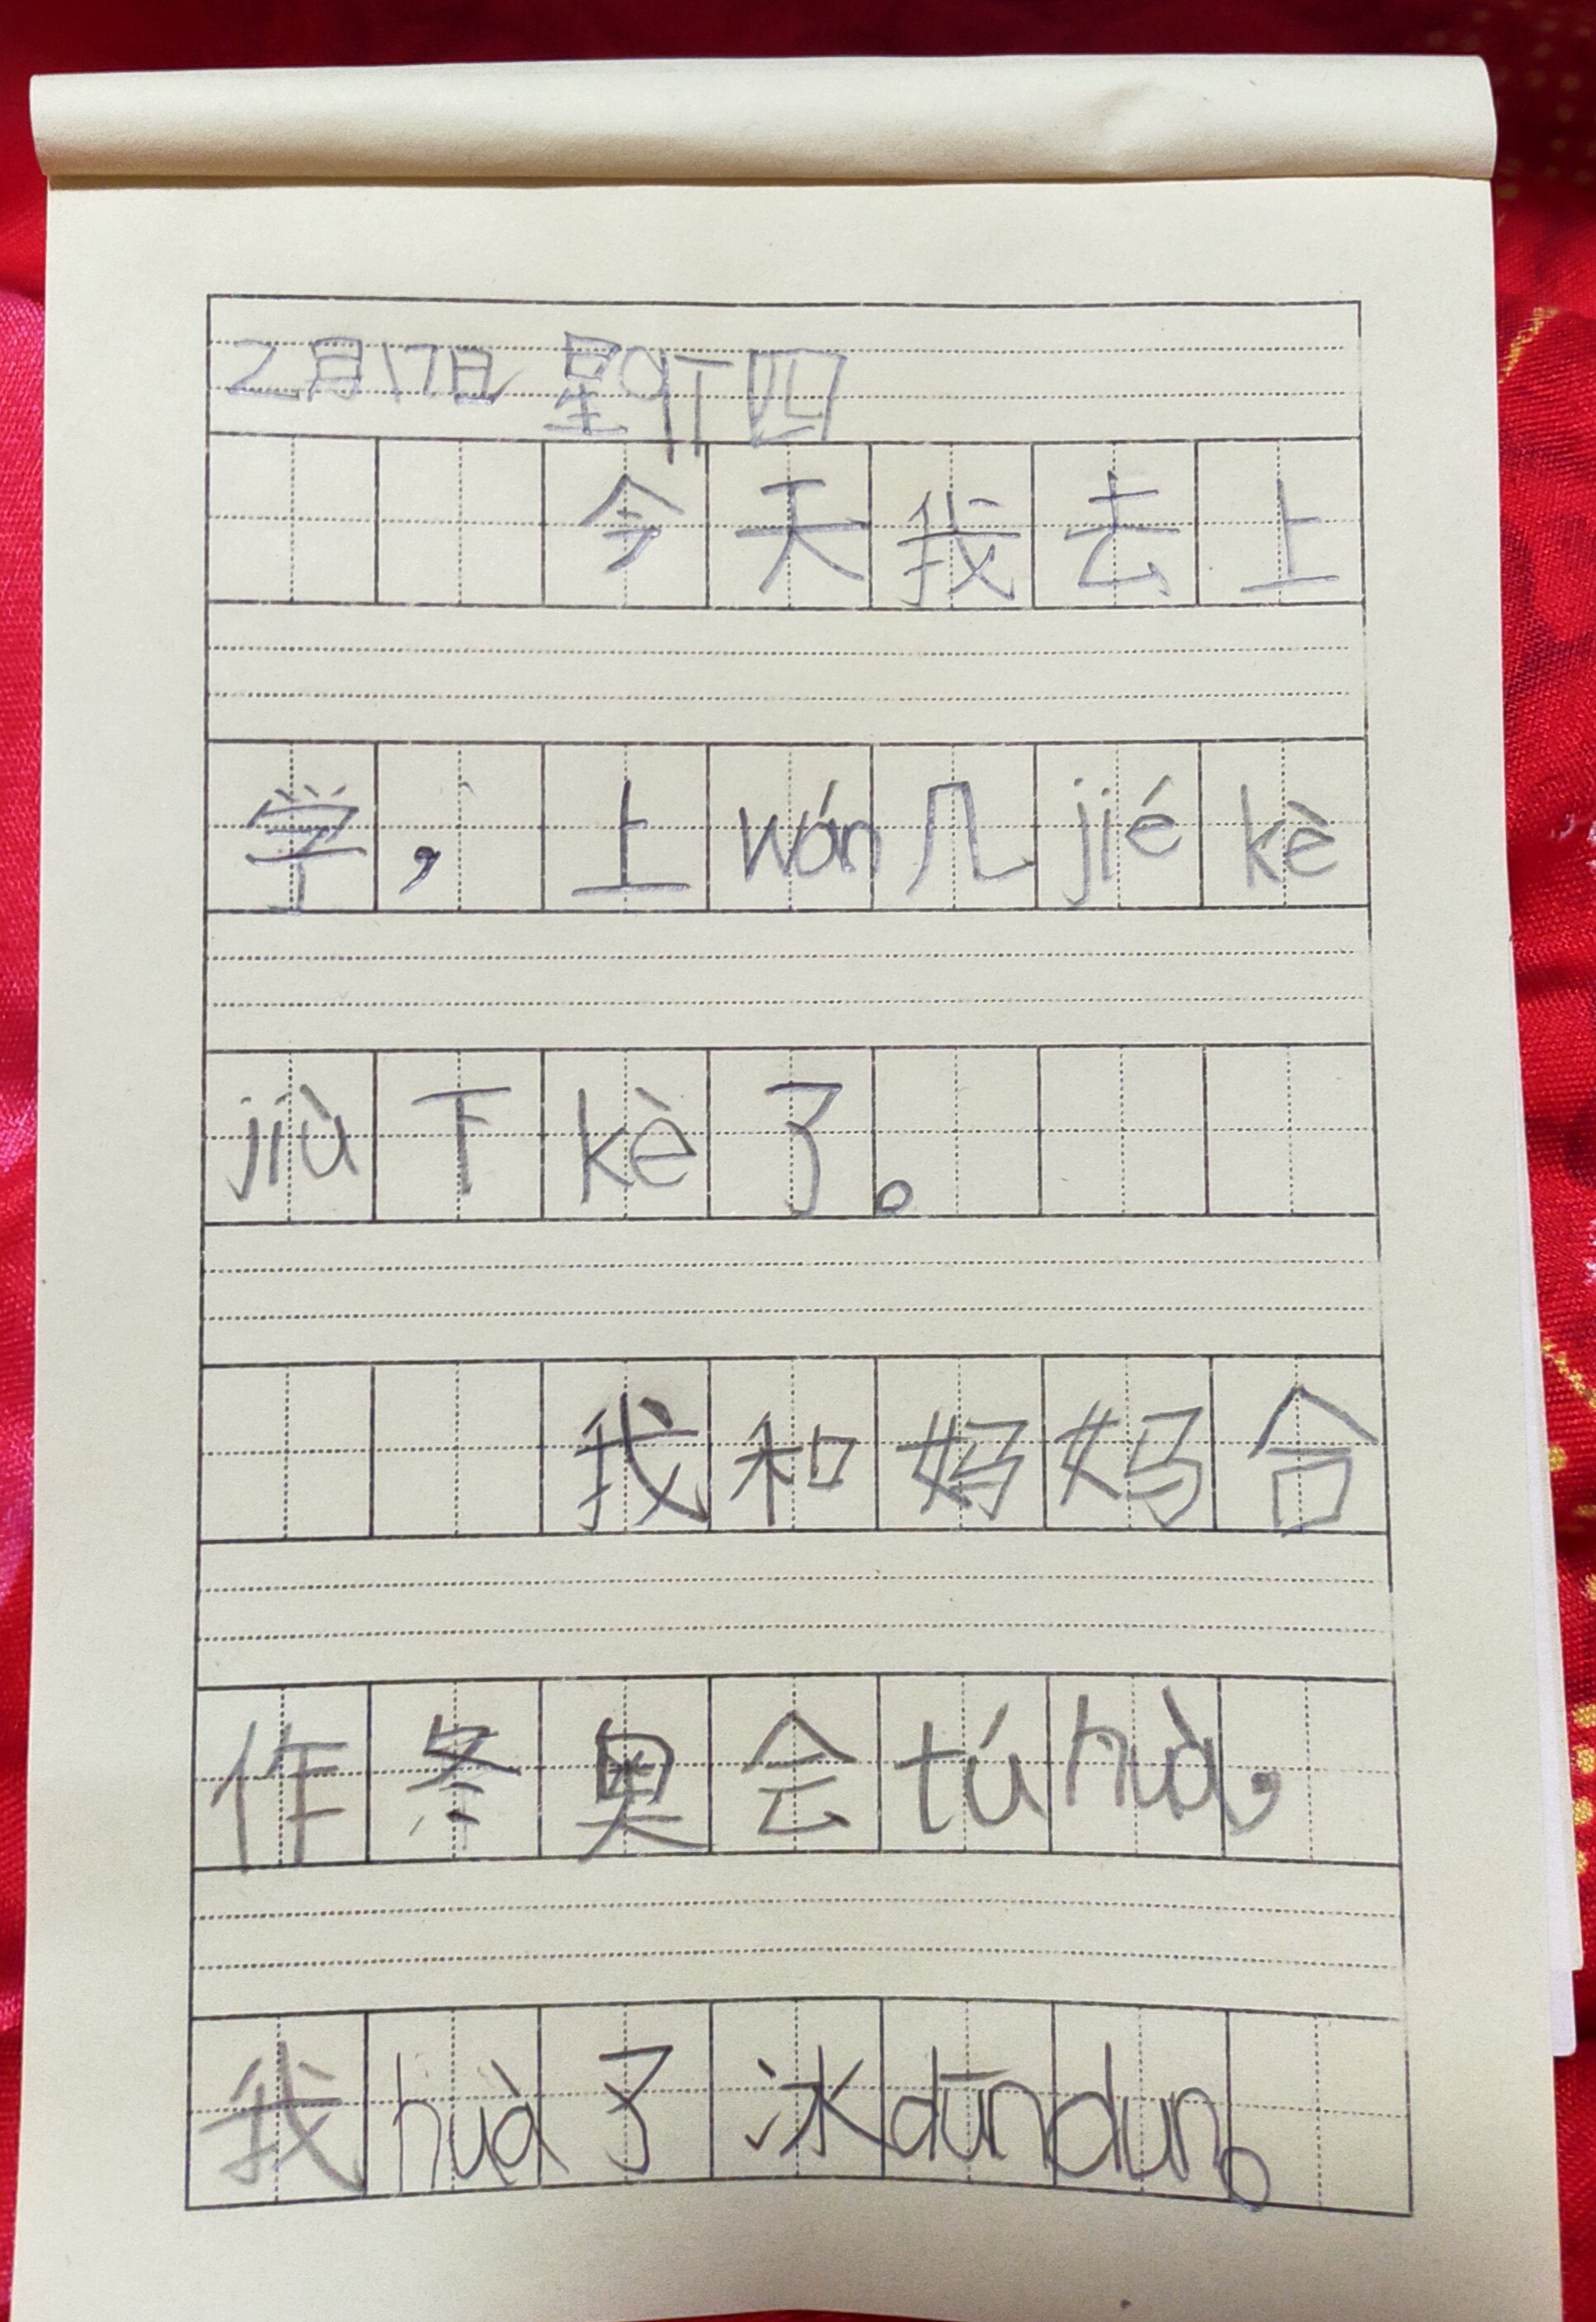 2月17日 星期四
今天我去上
学，上wán几jié kè
jiù下kè了。
我和妈妈合
作冬奥会tú huà，
我huà了冰dūndun。